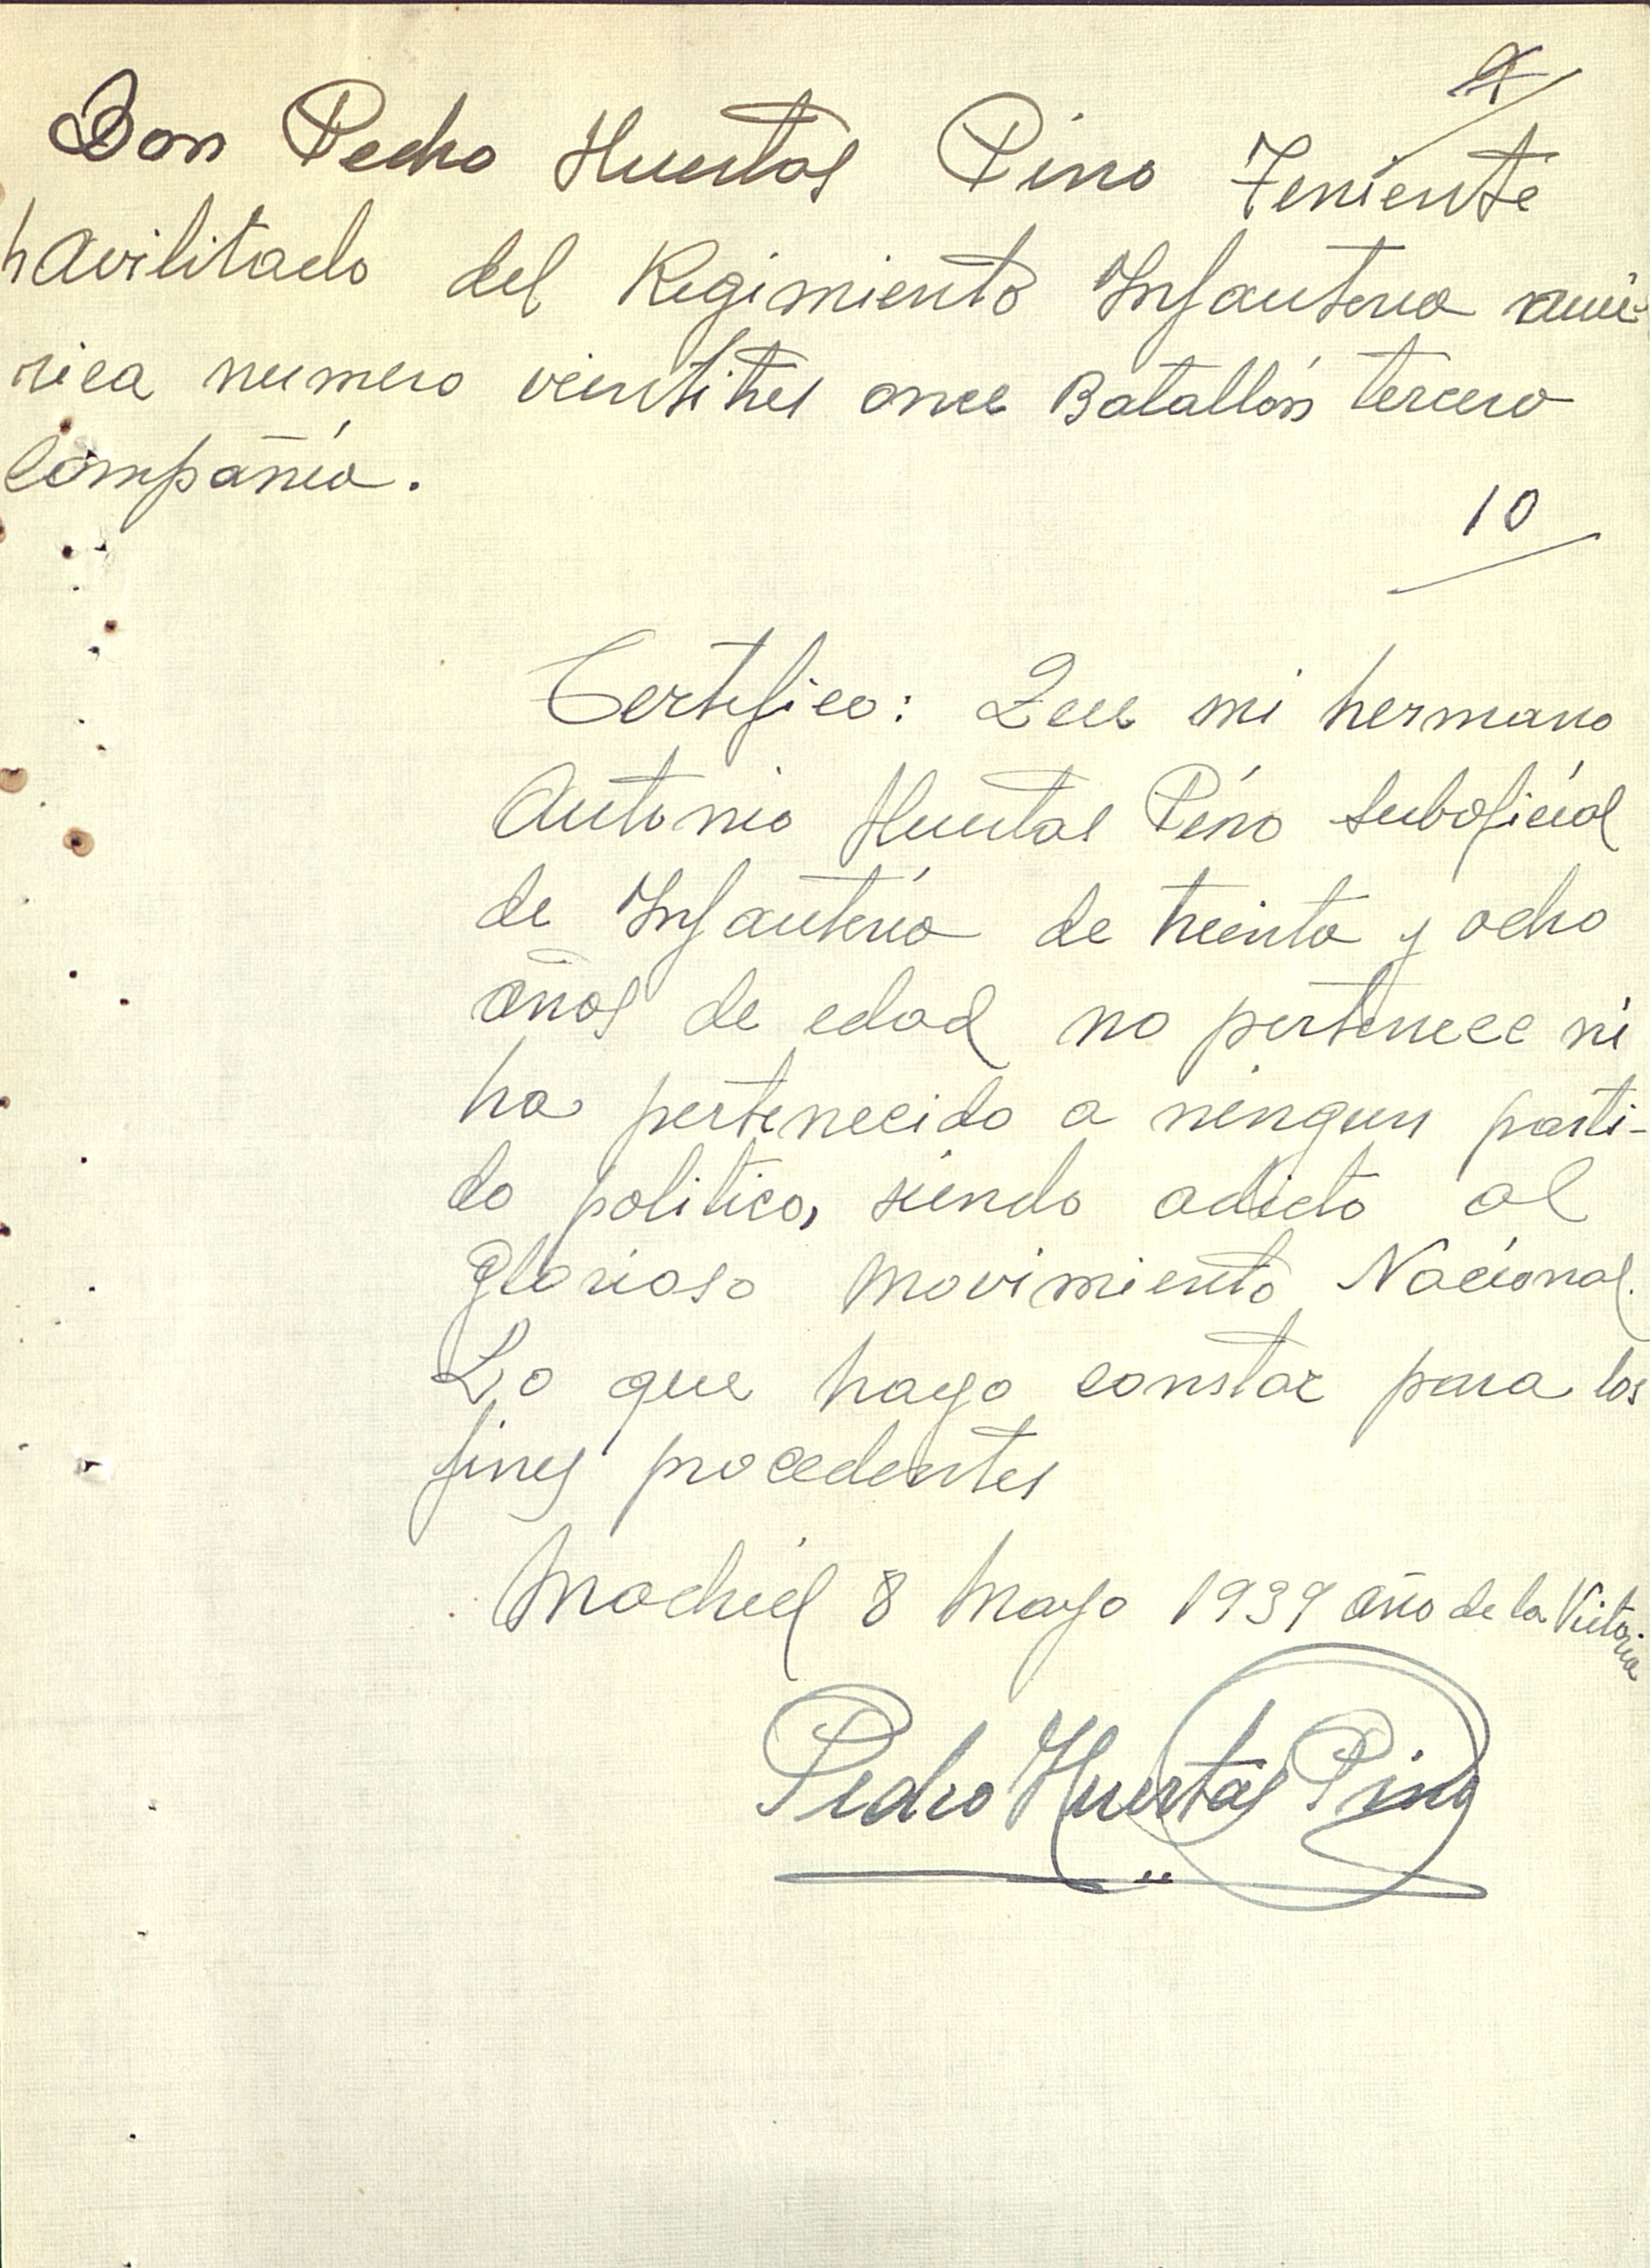 9
Don Pedro Huertas Pino Teniente
havilitado del Regimiento Infanteria amé-
rica numero veintitres once Batallón tercero
Compañía.
10
Certifico: Que mi hermano
Antonio Huertas Pino suboficial
de Infantería de treinta y ocho
años de edad no pertenece ni
ha pertenecido a ningun parti-
do politico, siendo adicto al
Glorioso Movimiento Nacional.
Lo que hago constar para los
fines procedentes
Madrid 8 Mayo 1939 año de la Victoria
Pedro Huertas Pino